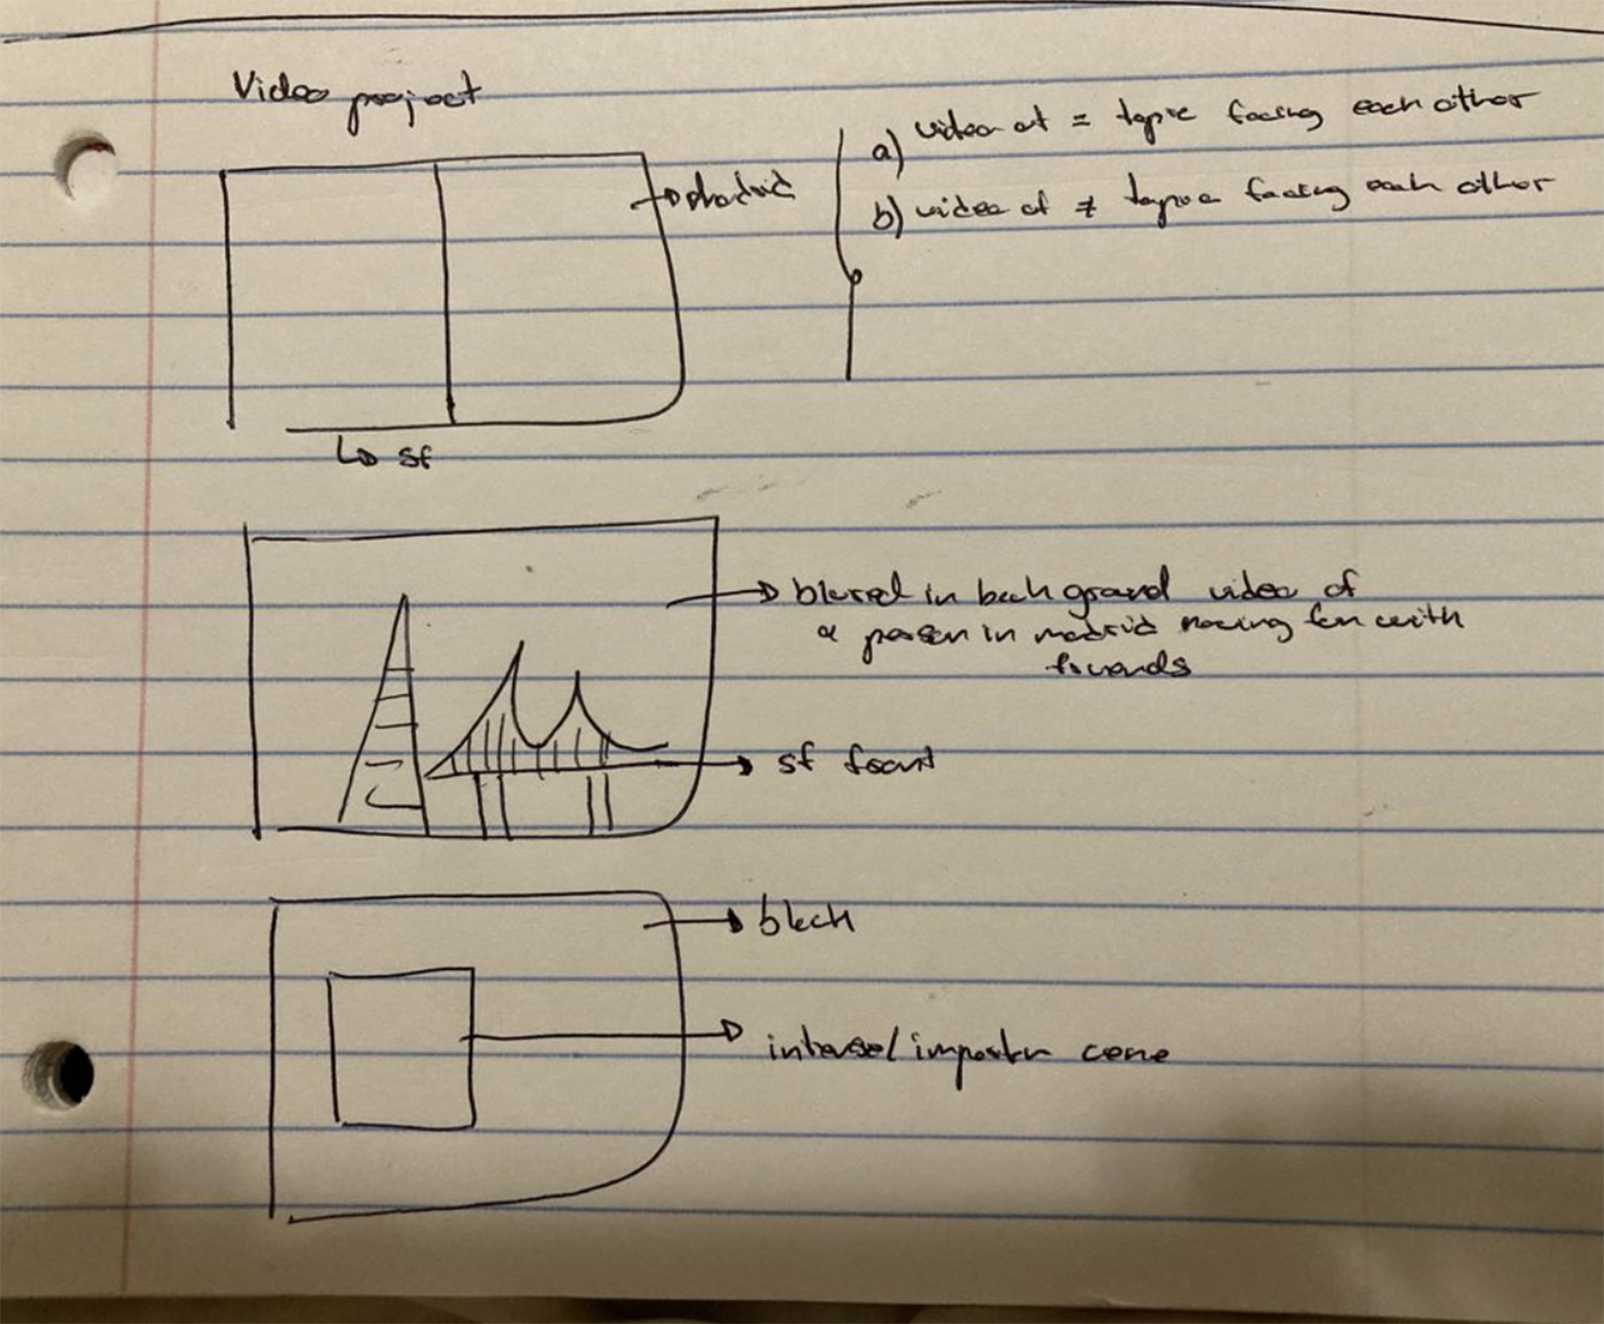 Video project
a) video of = topic facing each other
→ Madrid
b) video of ≠ topic facing each other
↳ sf
→ blured in background video of
a person in madrid having fun with
friends
→ sf front
→ black
→ /